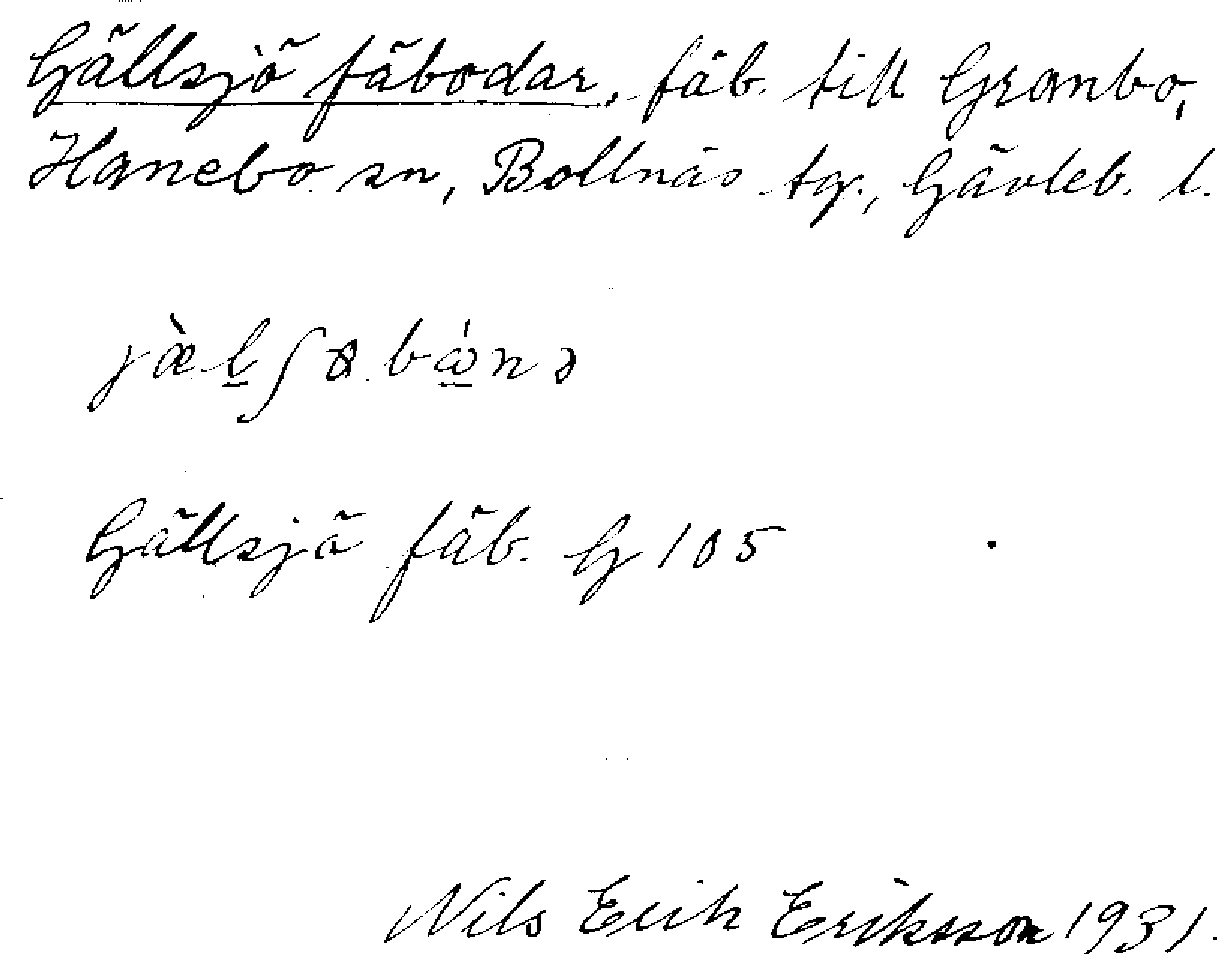 Gällsjö fäbodar, fäb. till Granbo,
Hanebo sn, Bollnäs tg., Gävleb. l.
Gällsjö fäb. G 105
Nils Erik Eriksson 1931.